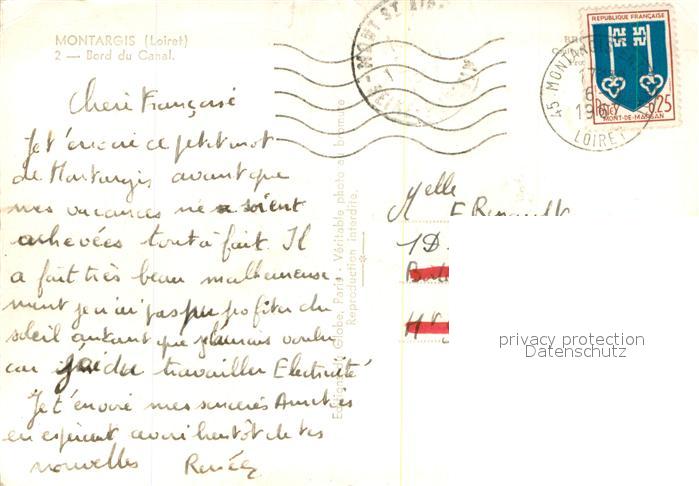 MONTARGIS (Loiret)
2 — Bord du Canal.
Cheri Française
Je t'envoie ce petit mot
de Montargis avant que
mes vacances ne soient
achevées tout à fait. Il
a fait très beau malheureuse
ment je n'ai pas pu profiter du
soleil autant que j'aurais voulu
car j'ai du travailler Electricité
Je t'envoie mes sincères Amitiés
en espérant avoir bientôt de tes
nouvelles Renée
Editions du Globe, Paris - Véritable photo au bromure
Reproduction interdite.
REPUBLIQUE FRANÇAISE
Postes 0,25
MONT-DE-MARSAN
45 MONTARGIS
17
6
LOIRET
Melle
F. Renault
1D
privacy protection
Datenschutz